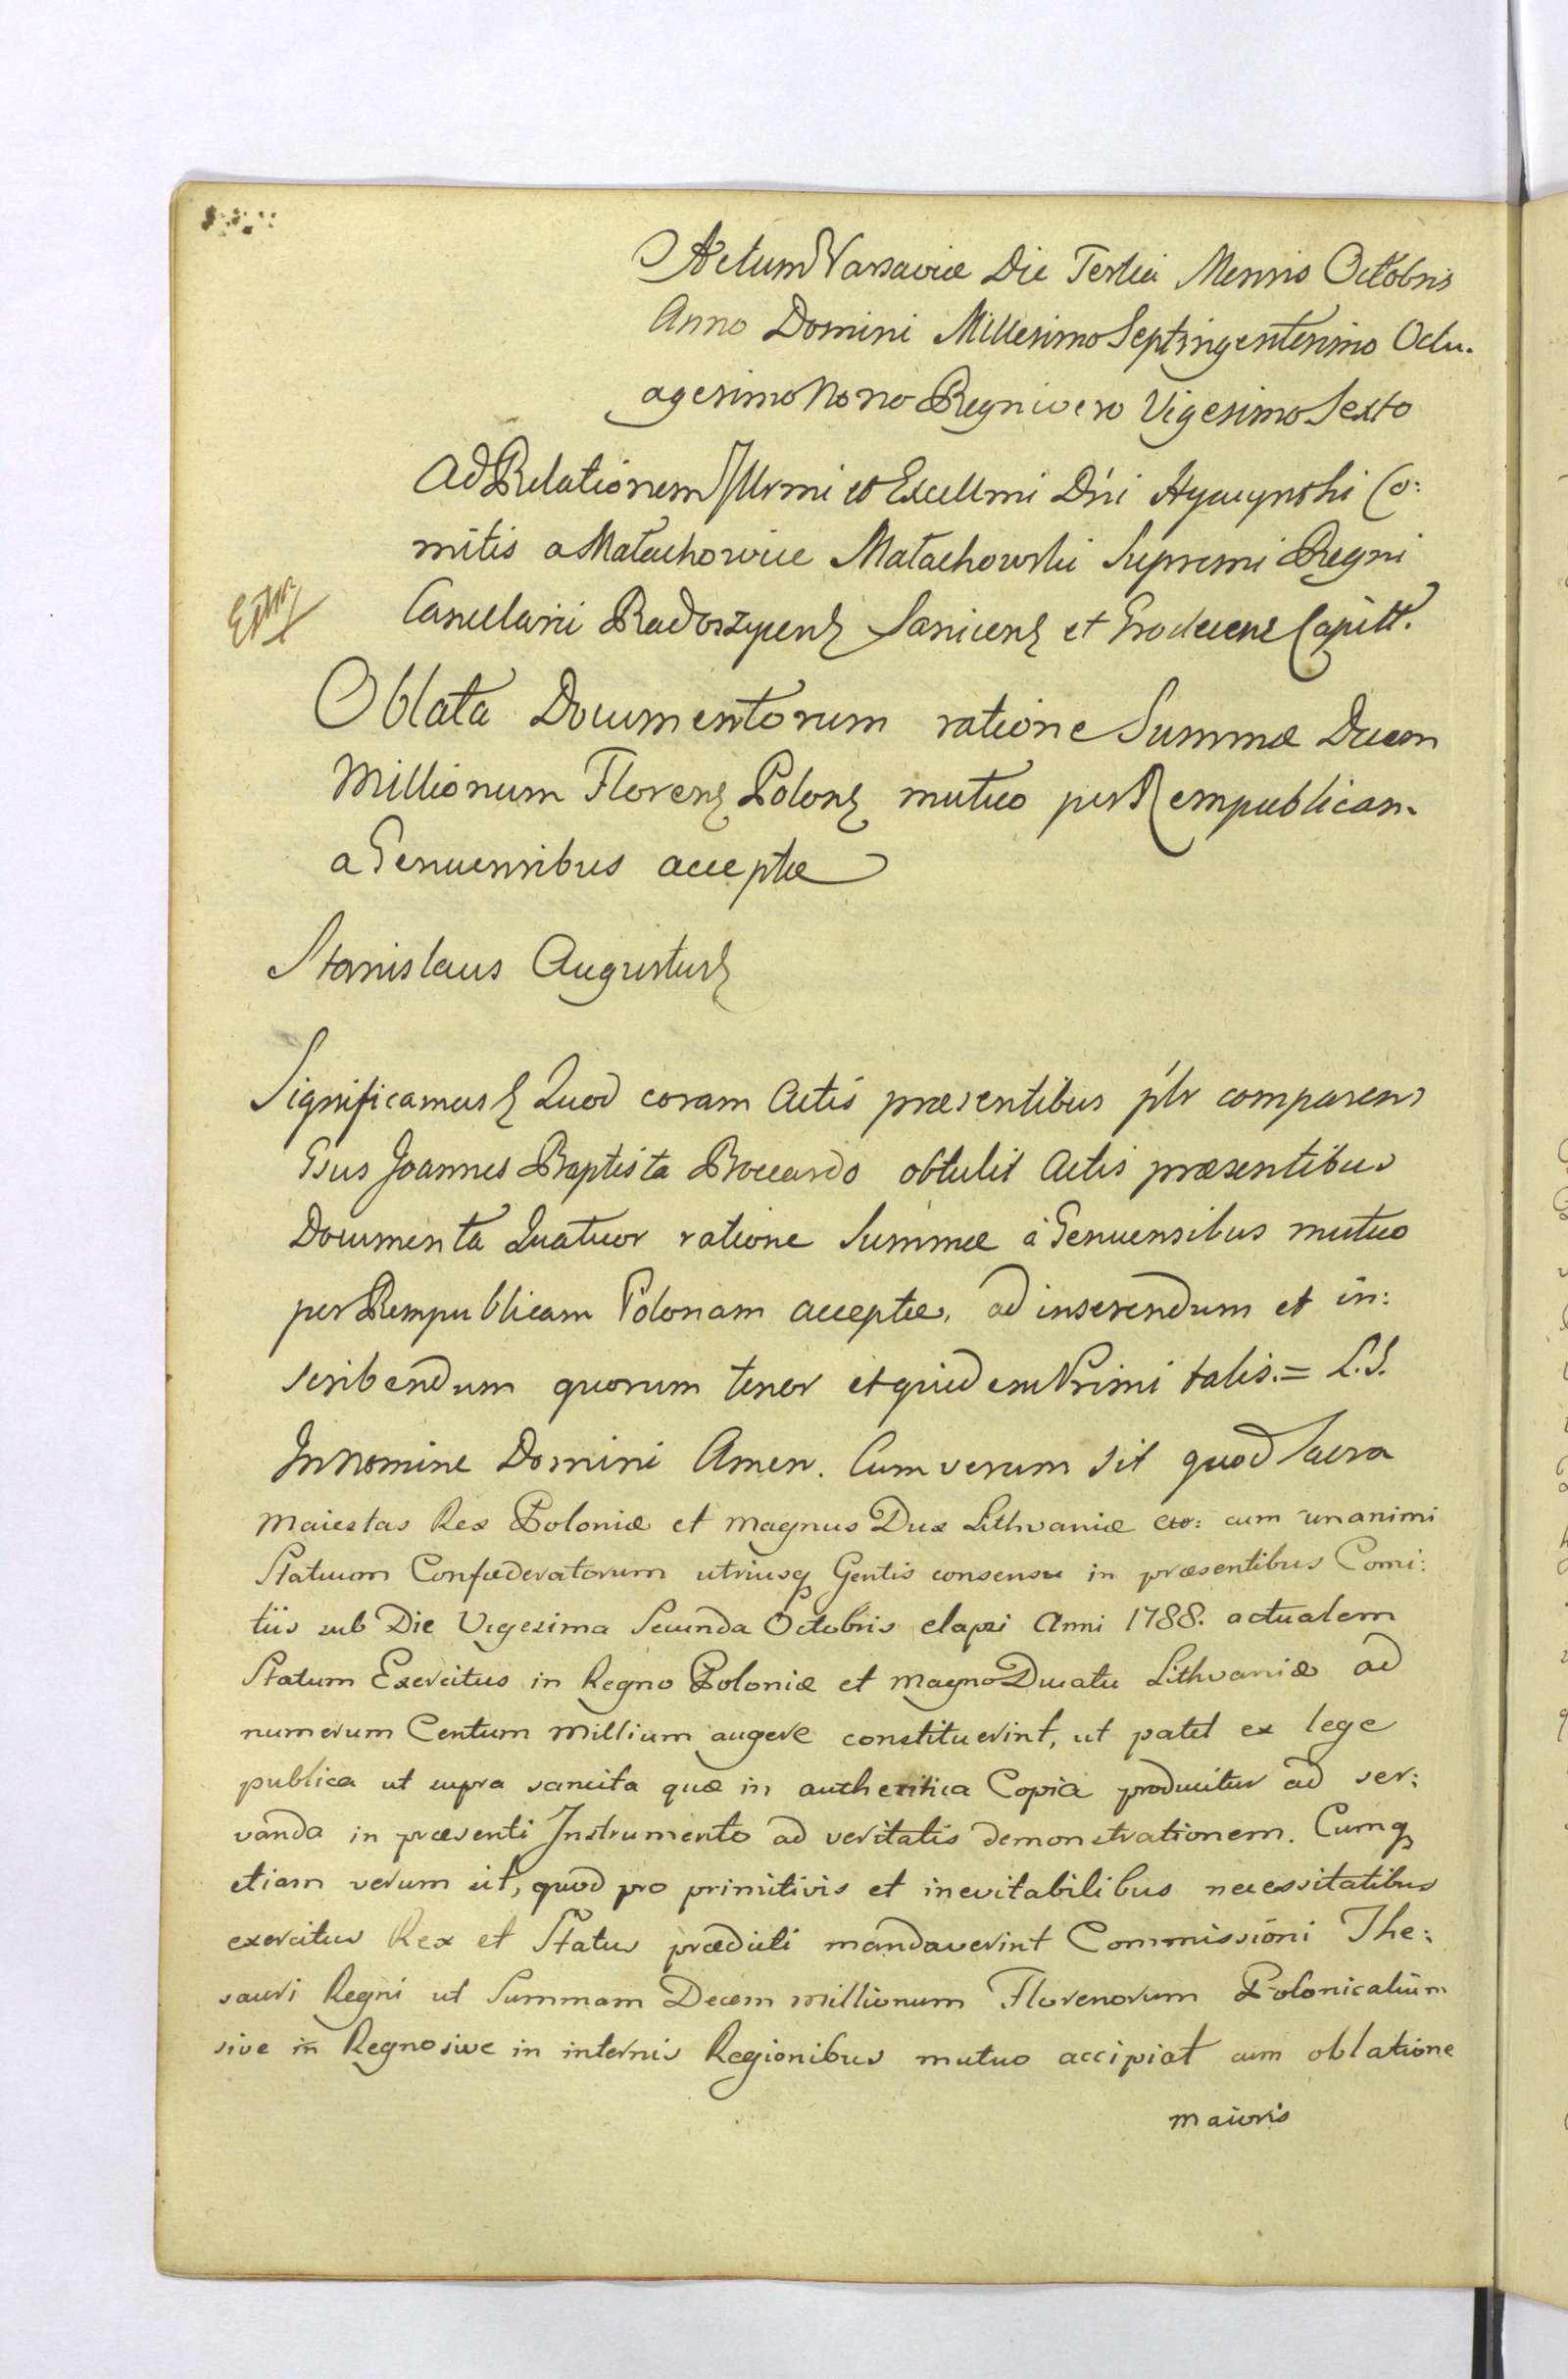 Actum Varsaviæ Die Tertia Mensis Octobris
Anno Domini Millesimo Septingentesimo Octu.
agesimo Nono Regni vero Vigesimo Sexto
Ad Relationem Illrmi et Excellmi Dni Hyacynthi Co:
mitis a Małachowice Małachowski Supremi Regni
Cancellarii Radoszycens Sanicens et Grodecens Capitt.
Oblata Documentorum ratione Summæ Decem
Millionum Florens Polons mutuo per Rempublicam
a Genuensibus acceptæ
Stanislaus Augustus
Significamus Quod coram Actis præsentibus plr comparens
Gsus Joannes Baptista Boccardo obtulit Actis præsentibus
Documenta Quatuor ratione Summæ à Genuensibus mutuo
per Rempublicam Polonam acceptæ, ad inserendum et in:
scribendum quorum tenor et quidem Primi talis. = L.S.
In Nomine Domini Amen. Cum verum sit quod Sacra
Maiestas Rex Poloniæ et Magnus Dux Lithvaniæ etc: cum unanimi
Statuum Confæderatorum utriusq Gentis consensu in præsentibus Comi:
tiis sub Die Vigesima Secunda Octobris elapsi Anni 1788. actualem
Statum Exercitus in Regno Poloniæ et Magno Ducatu Lithvaniæ ad
numerum Centum Millium augere constituerint, ut patet ex lege
publica ut supra sancita quæ in authentica Copia producitur ad ser:
vanda in præsenti Instrumento ad veritatis demonstrationem. Cumq
etiam verum sit, quod pro primitivis et inevitabilibus necessitatibus
exercitus Rex et Status prædicti mandaverint Commissioni The:
sauri Regni ut Summam Decem millionum Florenorum Polonicalium
sive in Regno sive in internis Regionibus mutuo accipiat cum oblatione
maioris